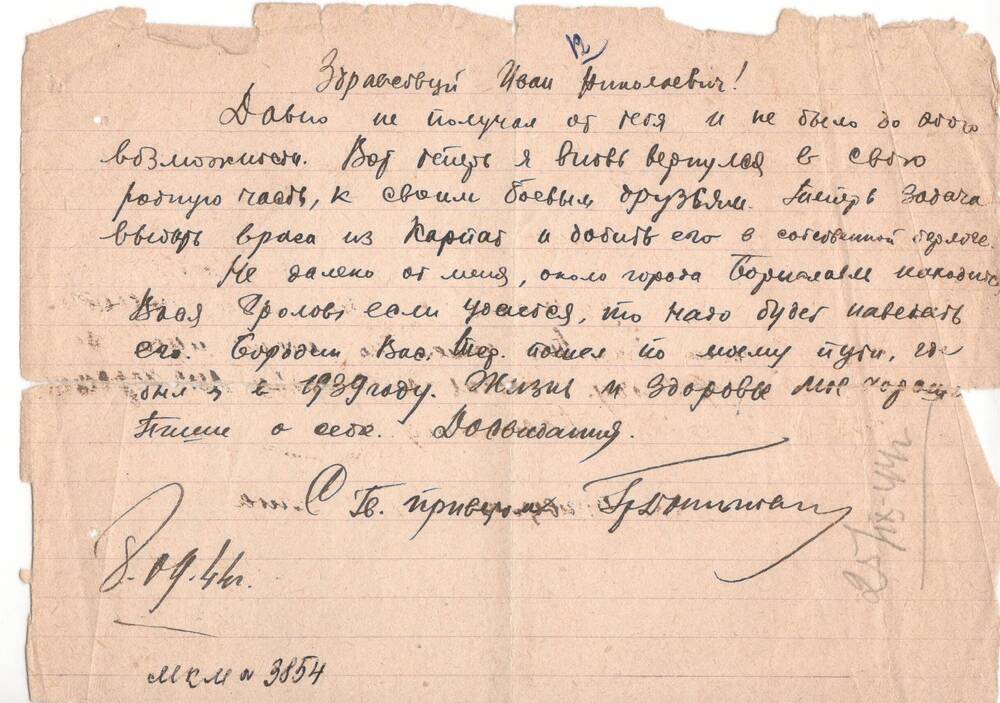 12
Здравствуй Иван Николаевич!
Давно не получал от тебя и не было до этого
возможности. Вот теперь я вновь вернулся в свою
родную часть, к своим боевым друзьям. Теперь задача
выбить врага из Карпат и добить его в собственной берлоге.
Не далеко от меня, около города находится
Вася Фролов, если удастся, то надо будет наведать
его. Бородин Вас. пошел по моему пути, где
был я в 1939 году. Жизнь и здоровье мое хорошо
Пиши о себе. Досвидания.
С Гв. приветом
8.09.44г.
25/IX-44г
МКМ N 3854